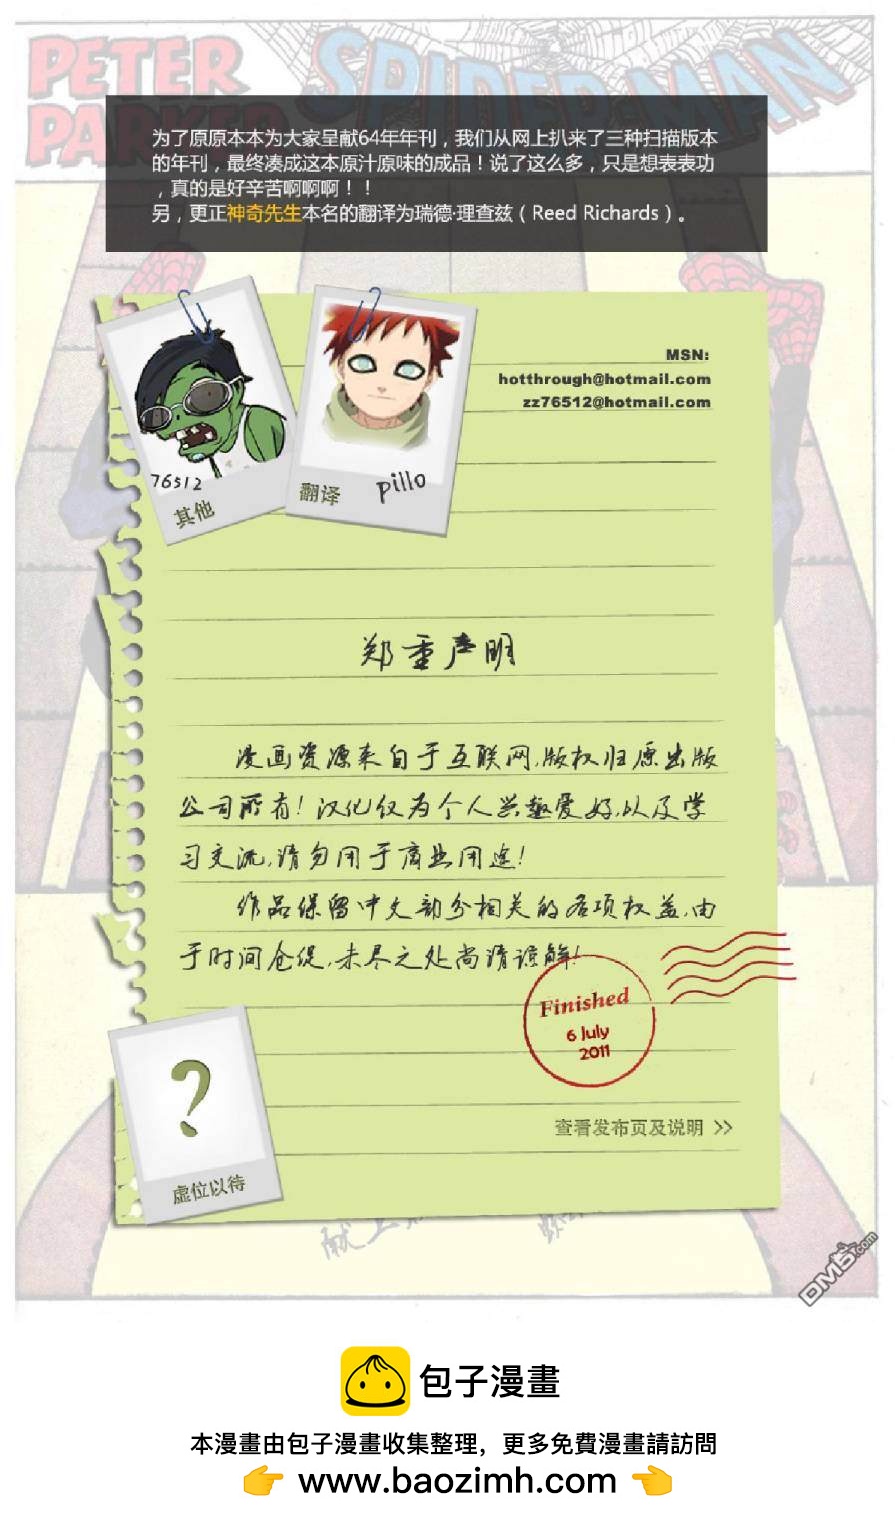 PETER SPIDER-MAN
PARKER
为了原原本本为大家呈献64年年刊，我们从网上扒来了三种扫描版本
的年刊，最终凑成这本原汁原味的成品！说了这么多，只是想表表功
，真的是好辛苦啊啊啊！！
另，更正神奇先生本名的翻译为瑞德·理查兹（Reed Richards）。
MSN:
hotthrough@hotmail.com
zz76512@hotmail.com
76512
其他
翻译 pillo
郑重声明
漫画资源来自于互联网,版权归原出版
公司所有!汉化仅为个人兴趣爱好,以及学
习交流,请勿用于商业用途!
作品保留中文部分相关的各项权益,由
于时间仓促,未尽之处尚请谅解!
Finished
6 July
2011
?
查看发布页及说明 >>
虚位以待
献上
DM5.com
包子漫畫
本漫畫由包子漫畫收集整理，更多免費漫畫請訪問
👉 www.baozimh.com 👈